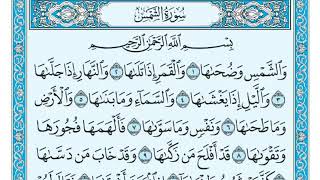 سُورَةُ الشَّمْسِ
بِسْمِ اللَّهِ الرَّحْمَٰنِ الرَّحِيمِ
وَالشَّمْسِ وَضُحَىٰهَا ١ وَالْقَمَرِ إِذَا تَلَىٰهَا ٢ وَالنَّهَارِ إِذَا جَلَّىٰهَا
٣ وَاللَّيْلِ إِذَا يَغْشَىٰهَا ٤ وَالسَّمَاءِ وَمَا بَنَىٰهَا ٥ وَالْأَرْضِ
وَمَا طَحَىٰهَا ٦ وَنَفْسٍ وَمَا سَوَّىٰهَا ٧ فَأَلْهَمَهَا فُجُورَهَا
وَتَقْوَىٰهَا ٨ قَدْ أَفْلَحَ مَن زَكَّىٰهَا ٩ وَقَدْ خَابَ مَن دَسَّىٰهَا